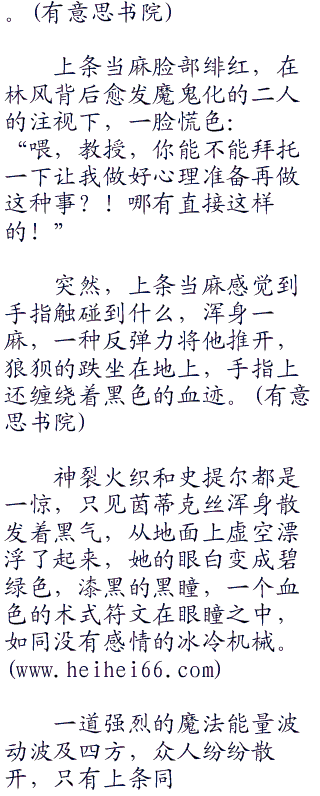 。(有意思书院)
上条当麻脸部绯红，在
林风背后愈发魔鬼化的二人
的注视下，一脸慌色：
“喂，教授，你能不能拜托
一下让我做好心理准备再做
这种事？！哪有直接这样
的！”
突然，上条当麻感觉到
手指触碰到什么，浑身一
麻，一种反弹力将他推开，
狼狈的跌坐在地上，手指上
还缠绕着黑色的血迹。(有意
思书院)
神裂火织和史提尔都是
一惊，只见茵蒂克丝浑身散
发着黑气，从地面上虚空漂
浮了起来，她的眼白变成碧
绿色，漆黑的黑瞳，一个血
色的术式符文在眼瞳之中，
如同没有感情的冰冷机械。
(www.heihei66.com)
一道强烈的魔法能量波
动波及四方，众人纷纷散
开，只有上条同